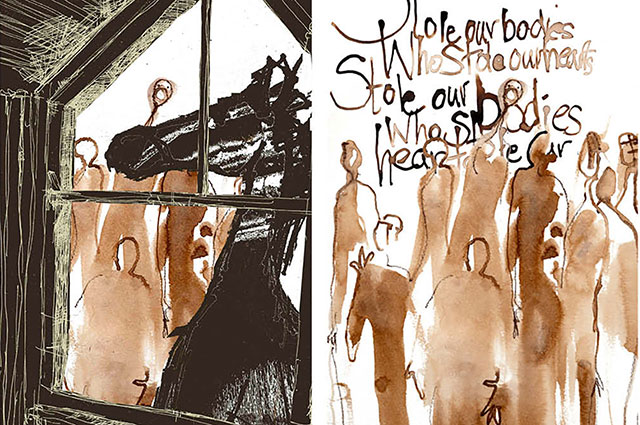 Stole our bodies
Who Stole our hearts
Stole our bodies
Who St
heart ole our